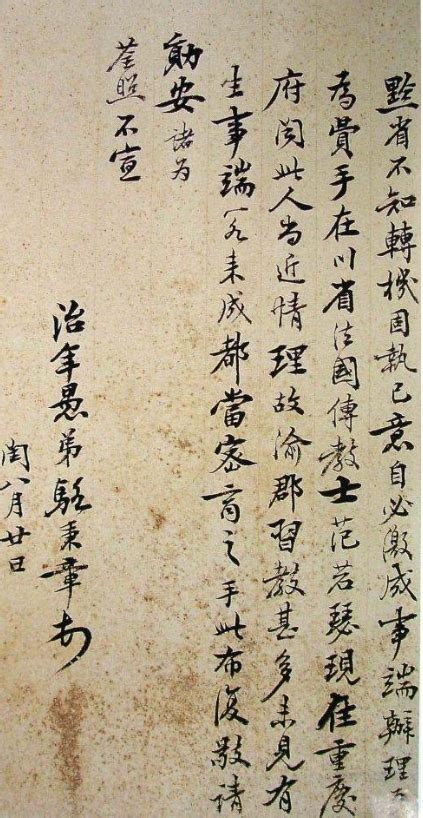 黔省不知轉機固執已意自必激成事端辦理
為費手在川省法國傳教士范若瑟現在重慶
府閱此人尚近情理故渝郡習教甚多未見有
生事端一来成都當密商之手此布復敬請
勛安諸为
荃照不宣
治年愚弟駱秉章
閏八月廿日